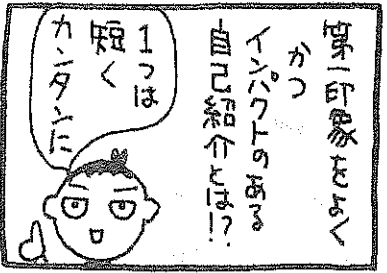 第一印象をよく
かつ
インパクトのある
自己紹介とは!?
1つは
短く
カンタンに